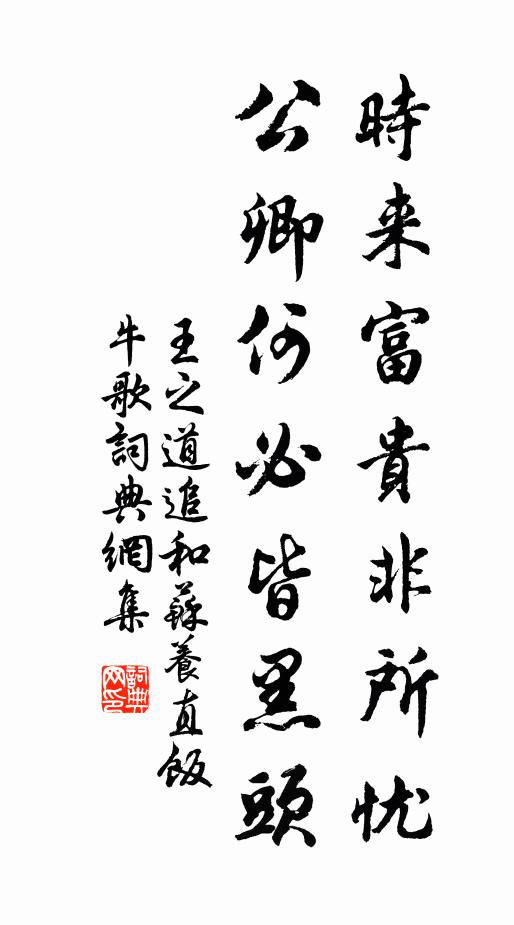 時来富貴非所忧
公卿何必皆黑頭
王之道追和蘇養直飯
牛歌詞典網集
詞典网印